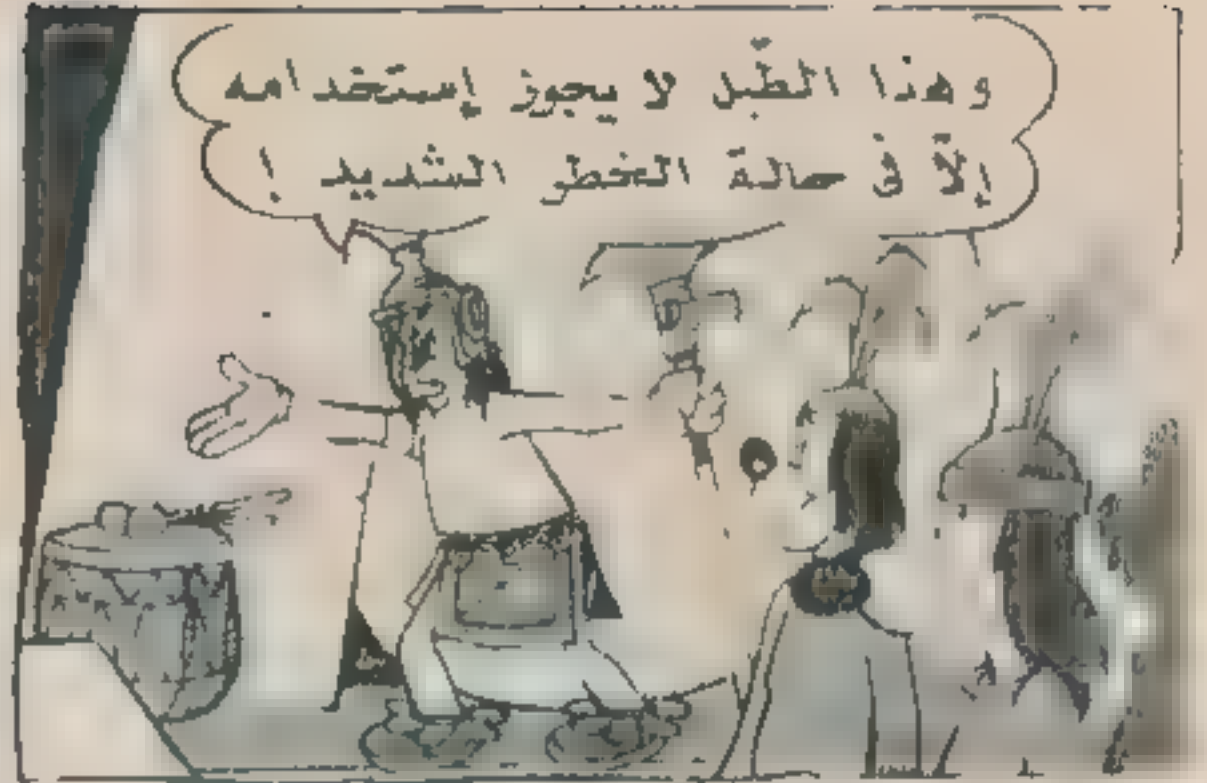 وهذا الطّبل لا يجوز إستخدامه
إلاّ في حالة الخطر الشديد !